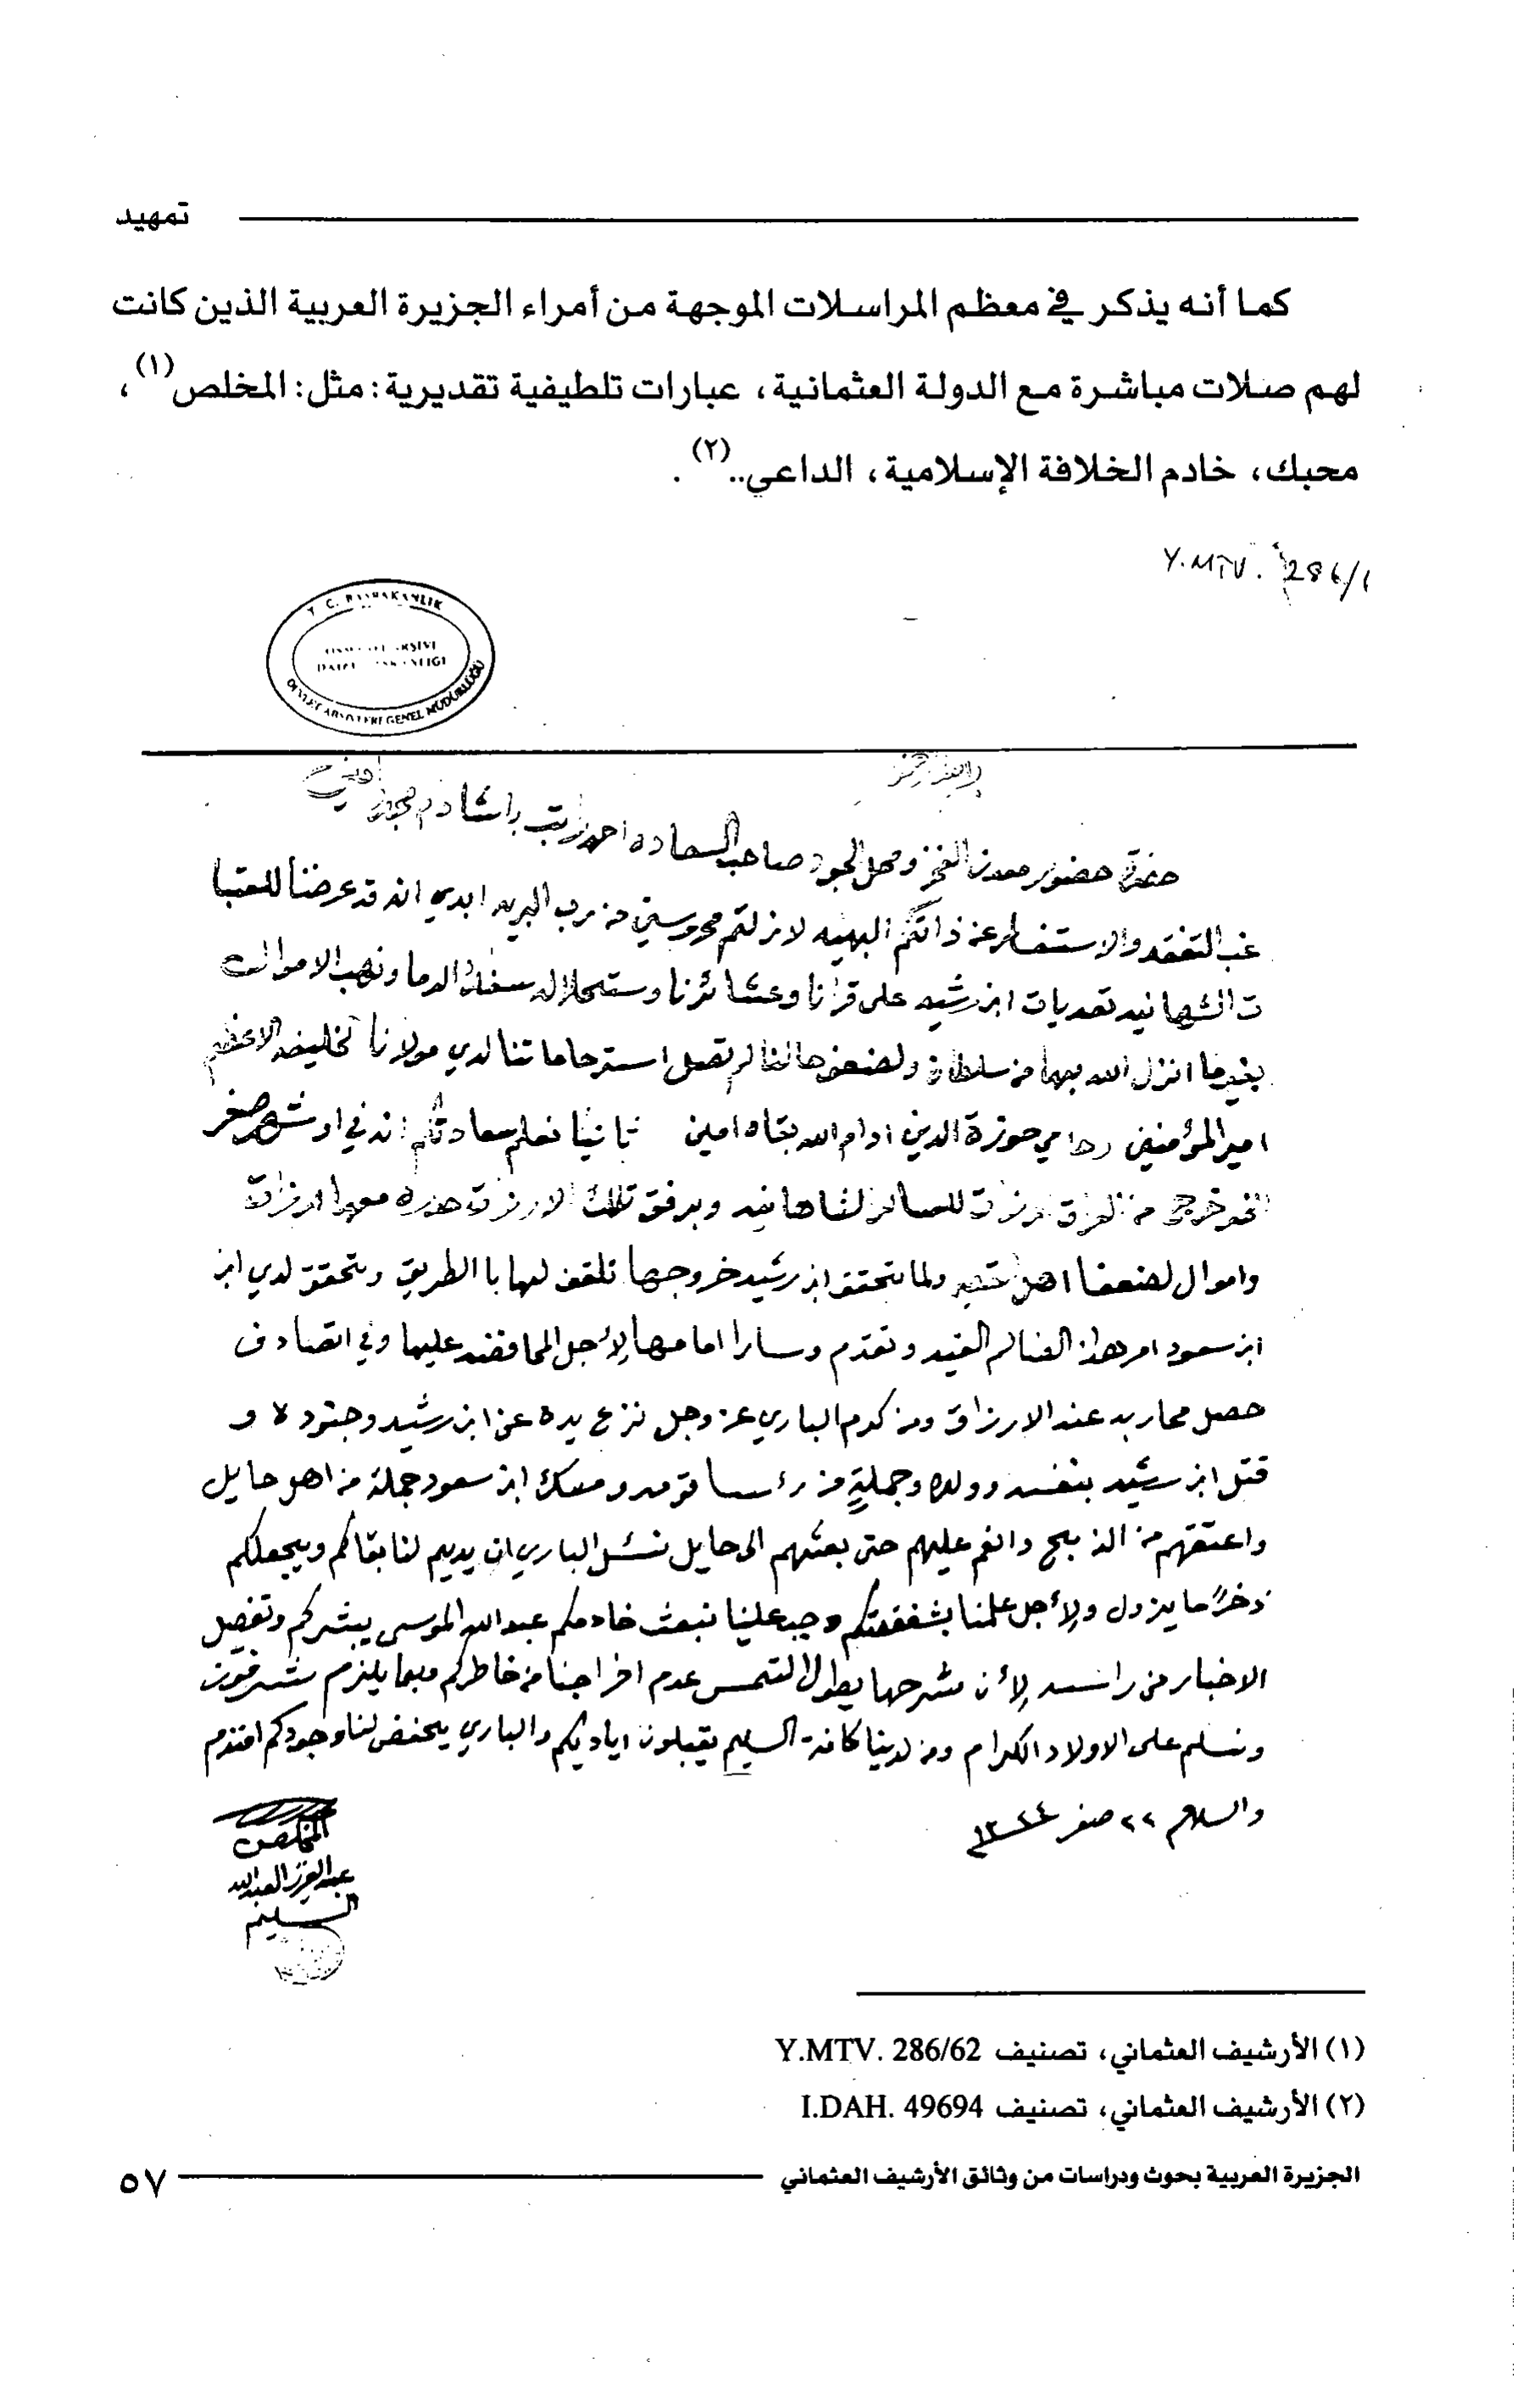 تمهيد
كما أنه يذكر في معظم المراسلات الموجهة من أمراء الجزيرة العربية الذين كانت
لهم صلات مباشرة مع الدولة العثمانية، عبارات تلطيفية تقديرية: مثل: المخلص(١)،
محبك، خادم الخلافة الإسلامية، الداعي..(٢).
Y.MTV. 286/
T.C. BAŞBAKANLIK
DEVLET ARŞİVLERİ GENEL MÜDÜRLÜĞÜ
حضرة حضور معدن الفخر ومحل الجود صاحب السعادة احمد راتب باشا دام
غب التفقد والاستفسار عن ذاتكم البهيه لازلتم محروسين من رب البريه ابدي انه قد عرضنا للعتبا
ت الشهانيه تعديات ابن رشيد على قرانا وعشائرنا وستحلاله سفك الدما ونهب الاموالت
بغير ما انزل الله بهما من سلطان ولضعف حالنا لم تصل استرحاماتنا لدي مولانا الخليفه الاعظم
امير المؤمنين وحامي حوزة الدين ادام الله بقاه امين ثانيا نعلم سعادتكم انه في شهر صفر
خرج من ارزاق للعساكر الشاهانيه وبرفق تلك الارزاق حدره معها ارزاق
واموال لضعفا اهل ولما تحقق ابن رشيد خروجها تلقف لها با الطريق وتحقق لدي ابن
ابن سعود امر هذا الضالم وتقدم وسارا امامها لأجل المحافضه عليها وفي اتصادف
حصل محاربه عند الارزاق ومن كرم الباري عز وجل نزع يده عن ابن رشيد وجنوده و
قتل ابن رشيد بنفسه وولده وجملةٍ من رئسا قومه ومسك ابن سعود جملة من اهل حايل
واعتقهم من الذبح وانعم عليهم حتى بعثهم الى حايل نسئل الباري ان يديم لنا بقاكم ويجعلكم
ذخرًا ما يزول ولأجل علمنا بشفقتكم وجب علينا نبعث خادمكم عبدالله الموسى يبشركم وتفصيل
الاخبار من راسه لأن شرحها يطول التمس عدم اخراجنا من خاطركم وبما يلزم شرفون
ونسلم على الاولاد الكرام ومن لدينا كافة السليم يقبلون اياديكم والباري يحفض لنا وجودكم افندم
والسلام ٢٢ صفر ١٣٢٤
المخلص
عبدالعزيز العبدالله
السليم
(١) الأرشيف العثماني، تصنيف Y.MTV. 286/62
(٢) الأرشيف العثماني، تصنيف I.DAH. 49694
الجزيرة العربية بحوث ودراسات من وثائق الأرشيف العثماني ٥٧